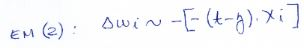 EM (2) : Δwi ~ -[-(t-y). xi]